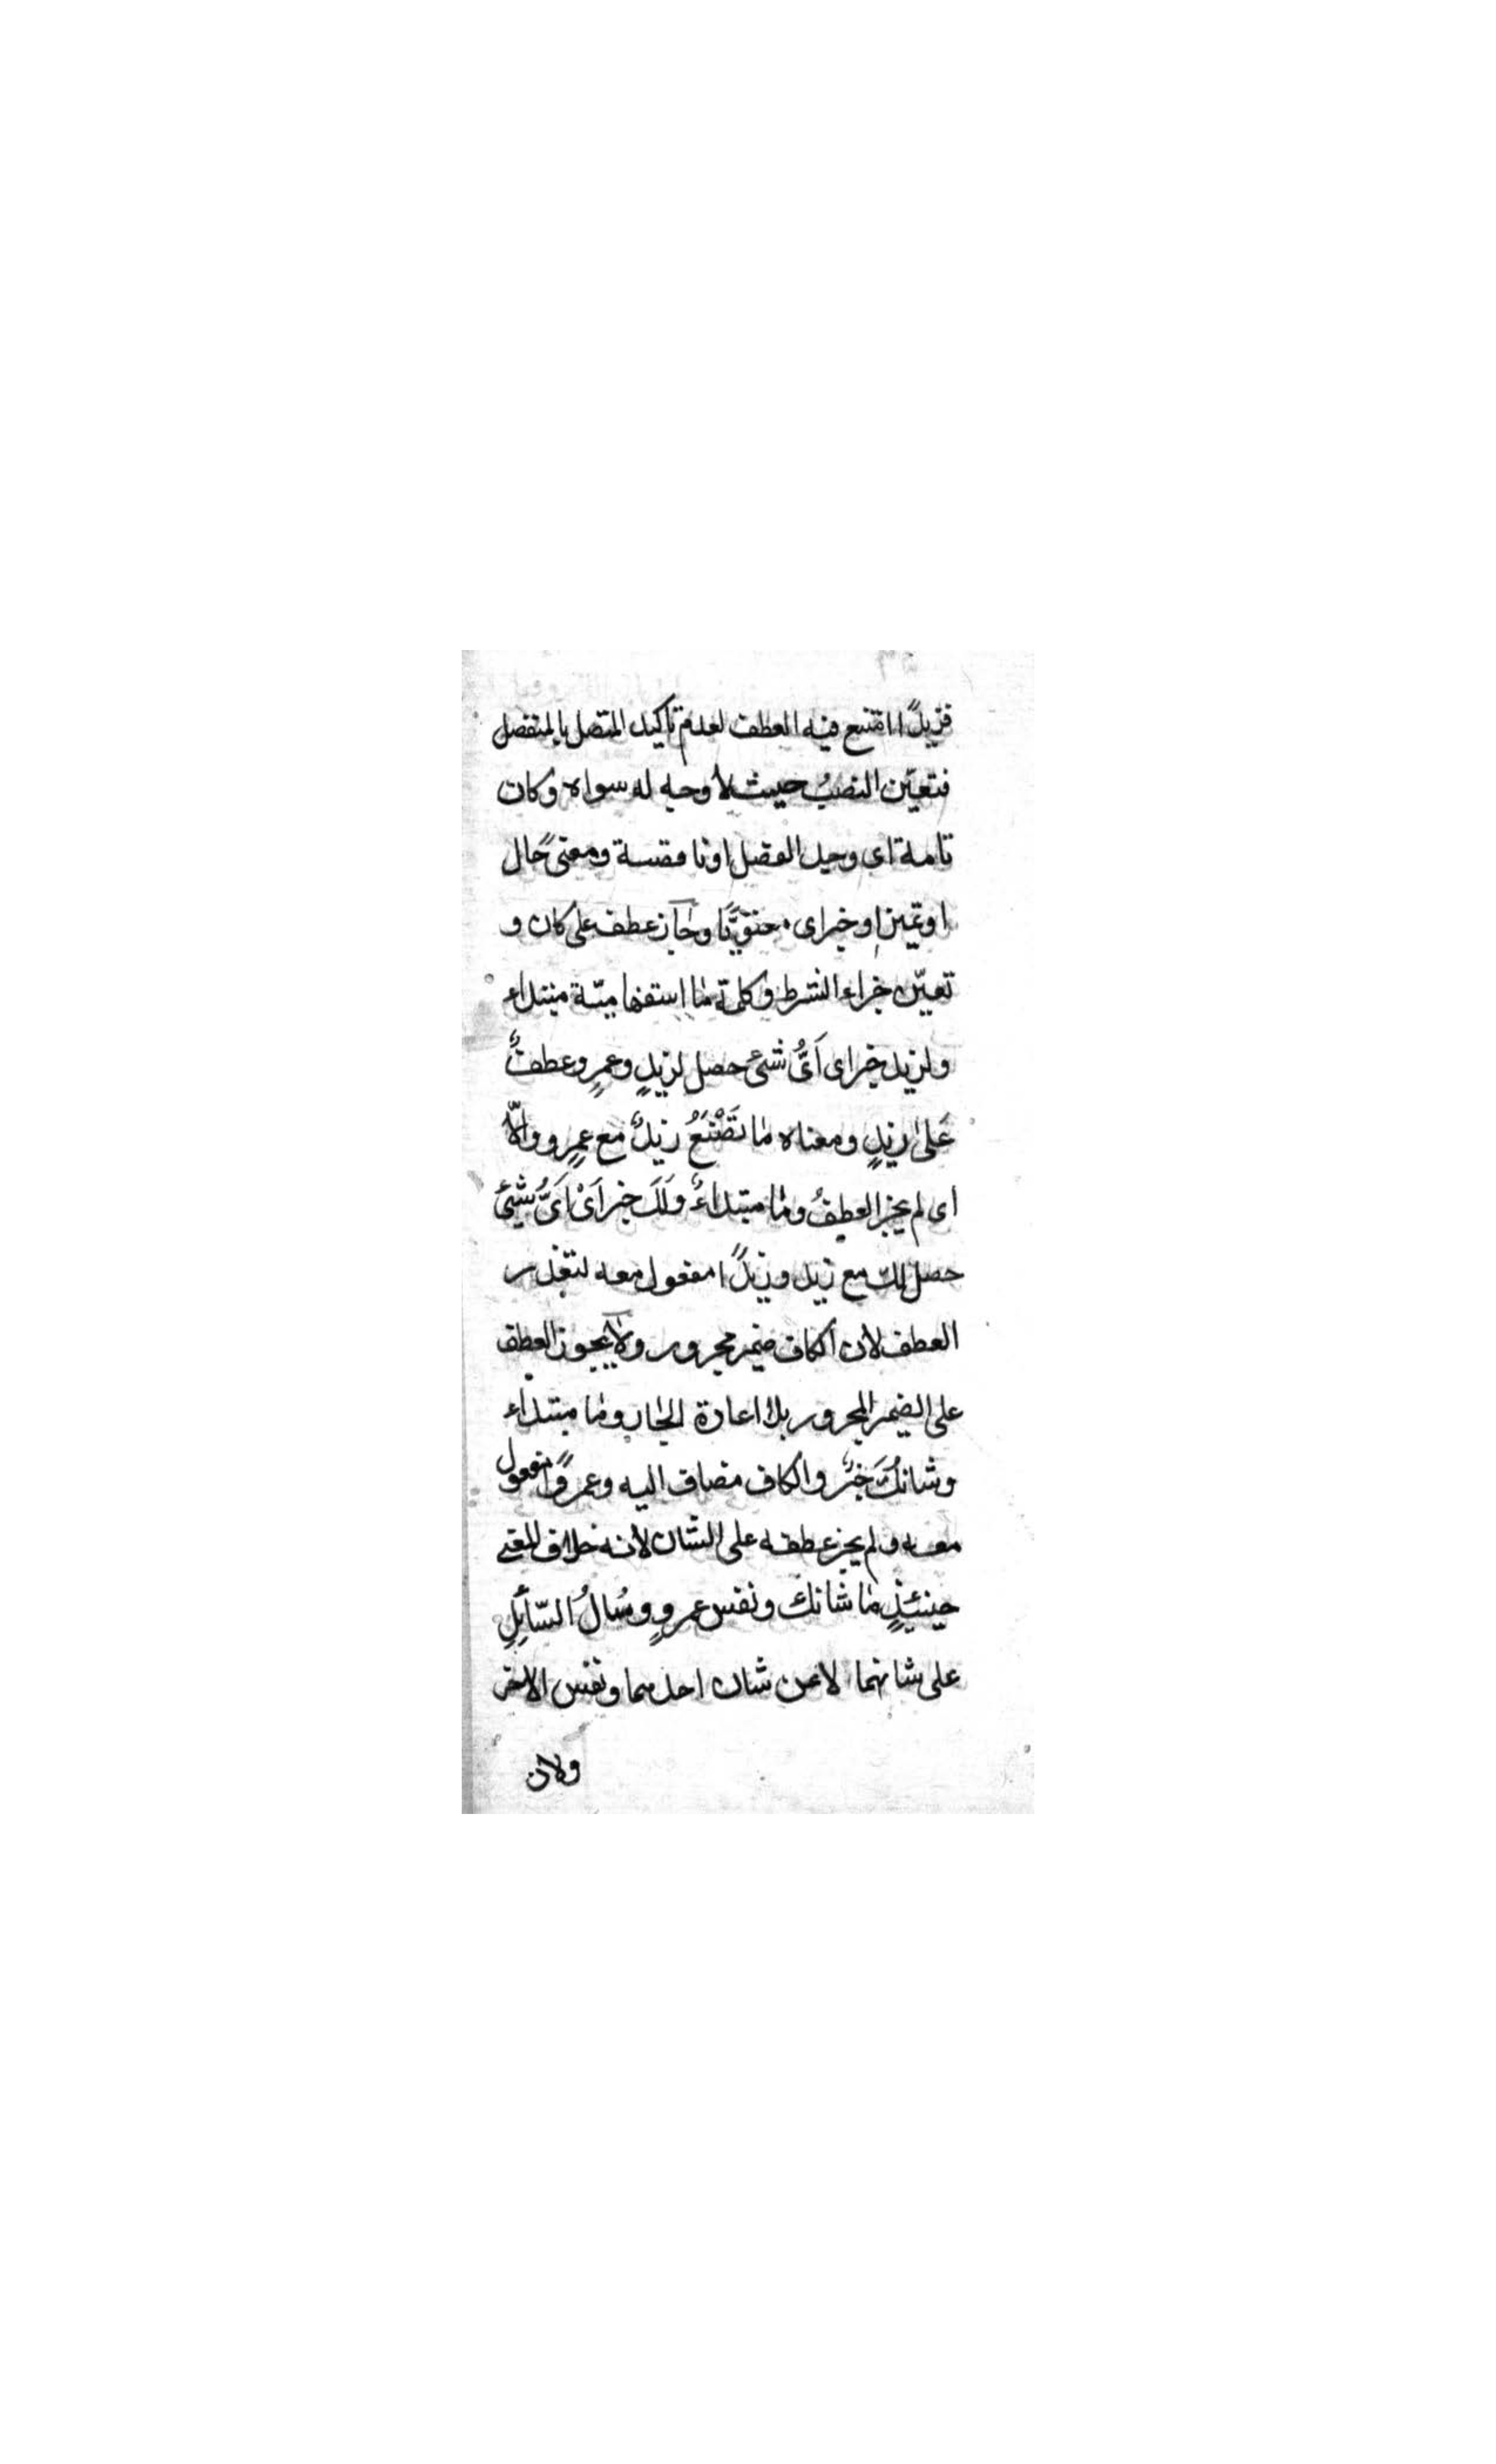 فزيدًا امتنع فيه العطف لعدم تأكيد المتصل بالمنفصل
فتعيّن النصبُ حيث لا وجه له سواه وكان
تامة اى وجد الفصل او ناقصة ومعنىً حال
او تميز او خبر اى معنويًّا وجاز عطف على كان و
تعيّن جزاء الشرط وكلمة ما استفهاميّة مبتداء
ولزيد خبر اى اَىُّ شىئ حصل لزيدٍ وعمرٍو عطفٌ
عَلىٰ زيدٍ ومعناه ما تَصْنَعُ زيدٌ مع عمرٍو والّا
اى لم يجز العطفُ وما مبتداءٌ ولَكَ خبر اَىْ اَىُّ شيئ
حصل لك مع زيد وزيدًا مفعول معه لتعذر
العطف لان الكاف ضمير مجرور ولا يجوز العطف
على الضمير المجرور بلا اعادة الجار وما مبتداء
وشانُكَ خبرٌ والكاف مضاف اليه وعمروًا مفعول
معه ولم يجز عطفه على الشان لانه خلاف المعنى
حينئذٍ ما شانك ونفس عمروٍ وسُالُ السّائِلِ
على شانهما لا عن شان احدهما ونفس الاخر
ولان